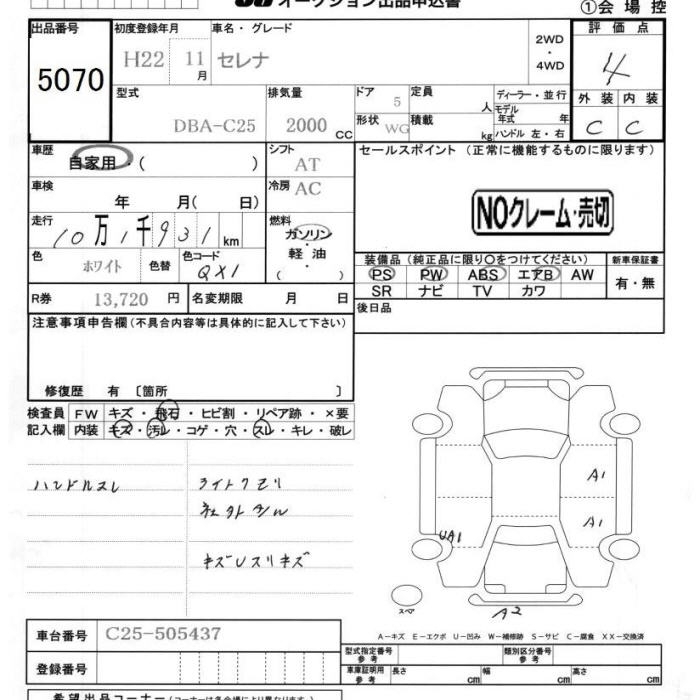 オークション出品申込書
①会場控
出品番号 初度登録年月 車名・グレード 評価点
5070 H22 11月 セレナ 2WD・4WD 4
型式 排気量 ドア 定員 ディーラー・並行 外装 内装
DBA-C25 2000CC 5 人 モデル年式 年 C C
形状 WG 積載 kg ハンドル 左・右
車歴 シフト セールスポイント (正常に機能するものに限ります)
自家用・( ) AT
車検 冷房
年 月( 日) AC NOクレーム・売切
走行 燃料
10万1千931km ガソリン・軽油・( )
色 色替 色コード 装備品(純正品に限り○をつけてください) 新車保証書
ホワイト QX1 PS PW ABS エアB AW 有・無
SR ナビ TV カワ
R券 13,720円 名変期限 月 日 後日品
注意事項申告欄(不具合内容等は具体的に記入して下さい)
修復歴 有 〔箇所 〕
検査員 FW キズ・飛石・ヒビ割・リペア跡・×要
記入欄 内装 キズ・汚レ・コゲ・穴・スレ・キレ・破レ
ハンドルスレ ライトクモリ A1
社外 A1
UA1
キズ スリキズ
スペア A2
A-キズ E-エクボ U-凹み W-補修跡 S-サビ C-腐食 XX-交換済
車台番号 C25-505437
型式指定番号 参考 類別区分番号 参考
登録番号 車庫証明用 参考 長さ cm 幅 cm 高さ cm
希望出品コーナー(コーナーは各会場により異なります)